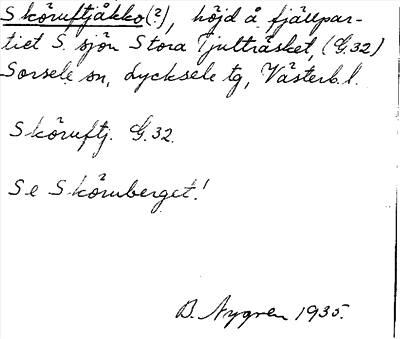 Sköruftjåkko(?), höjd å fjällpar-
tiet S. sjön Stora Tjulträsket, (G.32)
Sorsele sn, Lycksele tg, Västerb.l.
Sköruftj. G.32.
Se Skörvberget!
B. Nygren 1935.